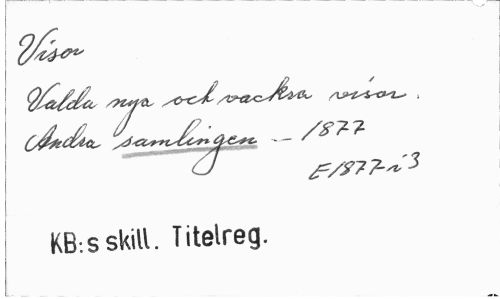 Visor
Valda nya och vackra visor.
Andra samlingen - 1877
E1877-i3
KB:s skill. Titelreg.